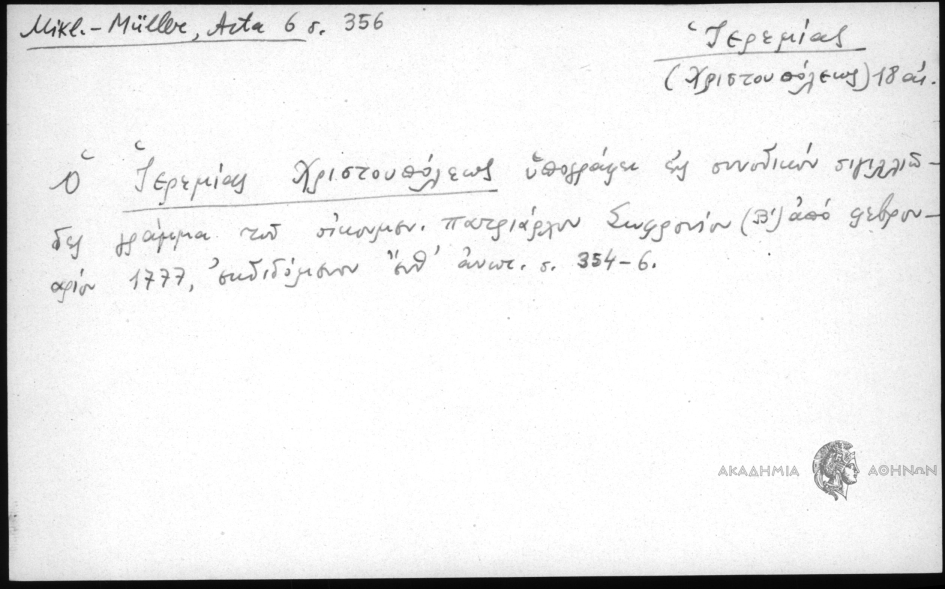 Mikl.-Müller, Acta 6 σ. 356
Ἱερεμίας
(Χριστουπόλεως) 18 αἰ.
Ὁ Ἱερεμίας Χριστουπόλεως ὑπογράφει εἰς συνοδικόν σιγιλλιῶ-
δες γράμμα τοῦ οἰκουμεν. πατριάρχου Σωφρονίου (Β') ἀπό φεβρου-
αρίου 1777, ἐκδιδόμενον ἔνθ' ἀνωτ. σ. 354-6.
ΑΚΑΔΗΜΙΑ ΑΘΗΝΩΝ